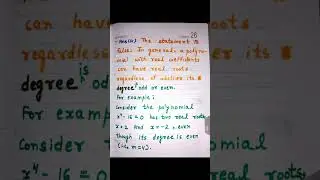 can have real roots
26
Ans(iv) The statement is
false. In general, a polyno-
mial with real coefficients
can have real roots
regardless of whether its
degree is odd or even.
For example:
Consider the polynomial
x⁴-16=0 has two real roots
x=2 and x=-2, even
Though its degree is even
(i.e., m=4).
regardless
its
degree
For exam
Consider
x⁴-16=0
real roots,
is even